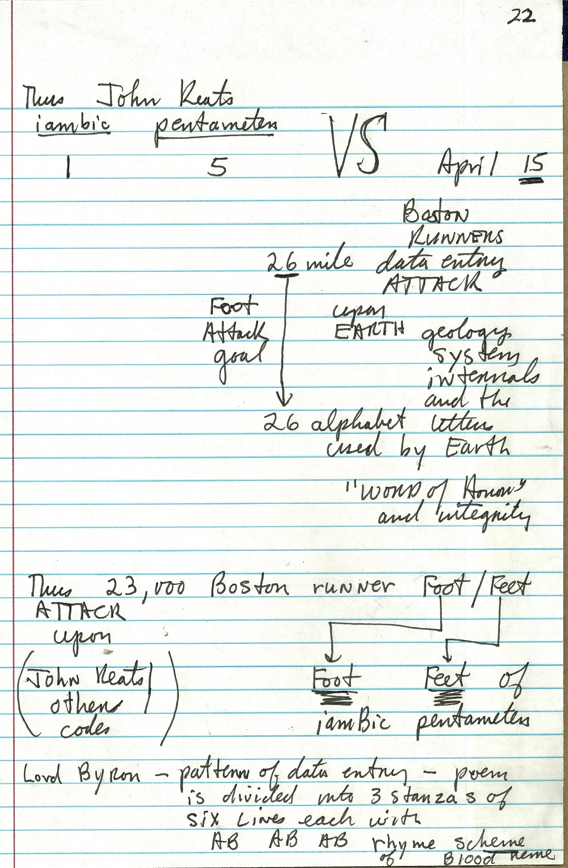 22
Thus John Keats
iambic pentameter
1 5
VS
April 15
Boston
RUNNERS
26 mile data entry
ATTACK
Foot
Attack
goal
upon
EARTH geology
system
internals
and the
26 alphabet letters
used by Earth
"WORD of Honor"
and integrity
Thus 23,000 Boston runner Foot/Feet
ATTACK
upon
(John Keats)
others
codes
Foot Feet of
iamBic pentameter
Lord Byron – pattern of data entry – poem
is divided into 3 stanza's of
six lines each with
AB AB AB rhyme scheme
of Blood heme